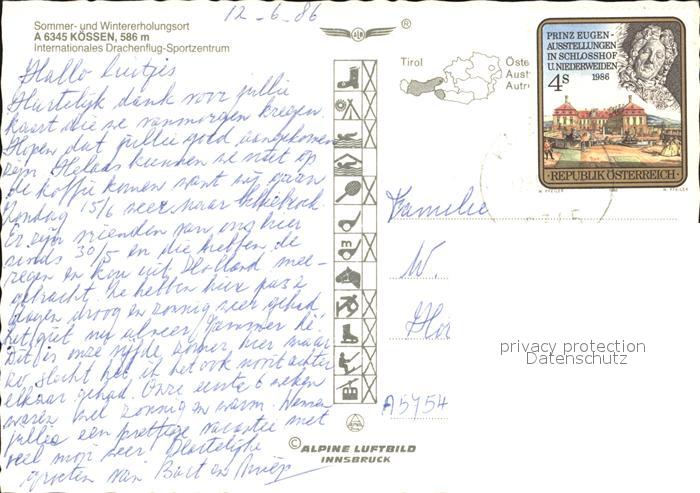 12-6-86
Sommer- und Wintererholungsort
A 6345 KÖSSEN, 586 m
Internationales Drachenflug-Sportzentrum
Hallo luitjes
Hartelijk dank voor jullie
kaart die we vanmorgen kregen.
Hopen dat jullie goed aangekomen
zijn. Helaas kunnen we niet op
de koffie komen want wij gaan
Zondag 15/6 weer naar
Er zijn vrienden van ons hier
sinds 30/5 en die hebben de
regen en kou uit Holland mee-
gebracht. Ze hebben hier pas 2
dagen droog en zonnig weer gehad
het giet nu alweer. Jammer hè.
Dit is onze vijfde zomer hier maar
zo slecht heb ik het ook nooit achter
elkaar gehad. Onze eerste 6 weken
waren wel zonnig en warm. Wensen
jullie een prettige vacantie met
veel mooi weer Hartelijke
groeten van Bart en
Tirol
Öste
Aust
Autr
PRINZ EUGEN-
AUSSTELLUNGEN
IN SCHLOSSHOF
U. NIEDERWEIDEN
4S 1986
REPUBLIK ÖSTERREICH
W. PFEILER 1986 W. PFEILER
Familie
W.
privacy protection
Datenschutz
A5454
© ALPINE LUFTBILD
INNSBRUCK